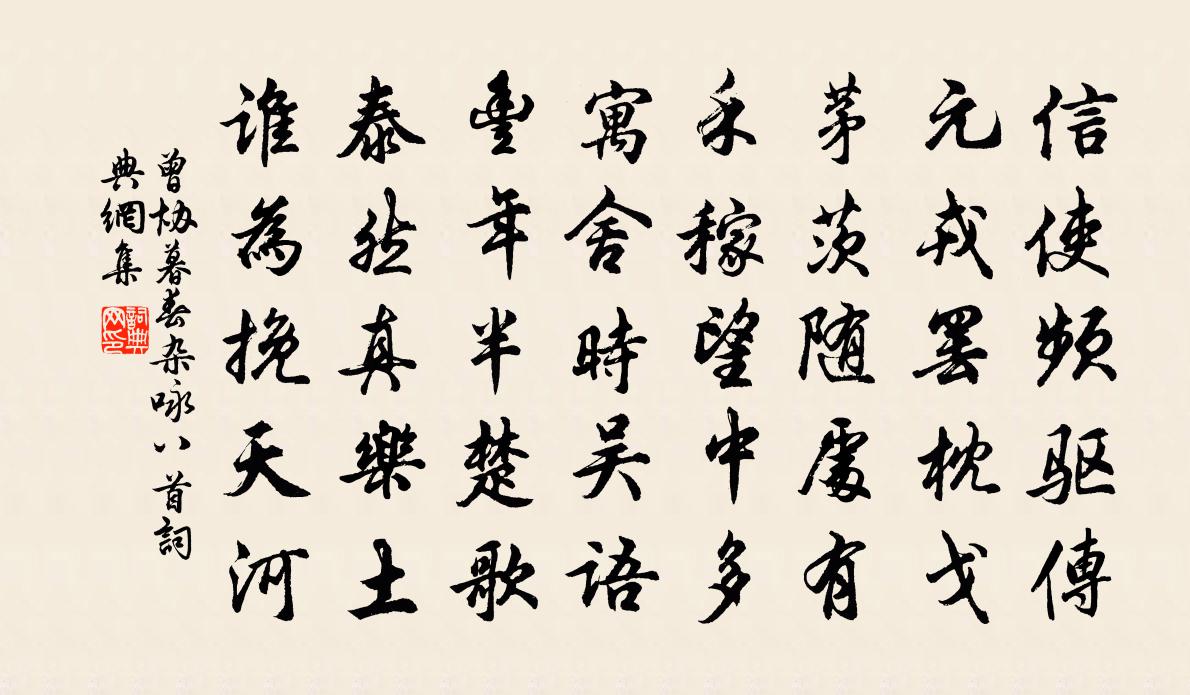 信使頻驱傳
元戎罢枕戈
茅茨随處有
禾稼望中多
寓舍時吴语
豊年半楚歌
泰然真樂土
谁為挽天河
曾协暮春杂咏八首詞
典網集
詞典
网印